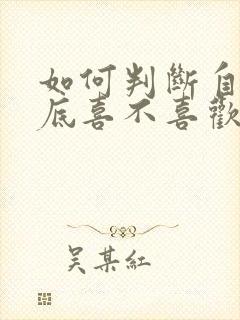 如何判斷自
底喜不喜歡
吴某紅